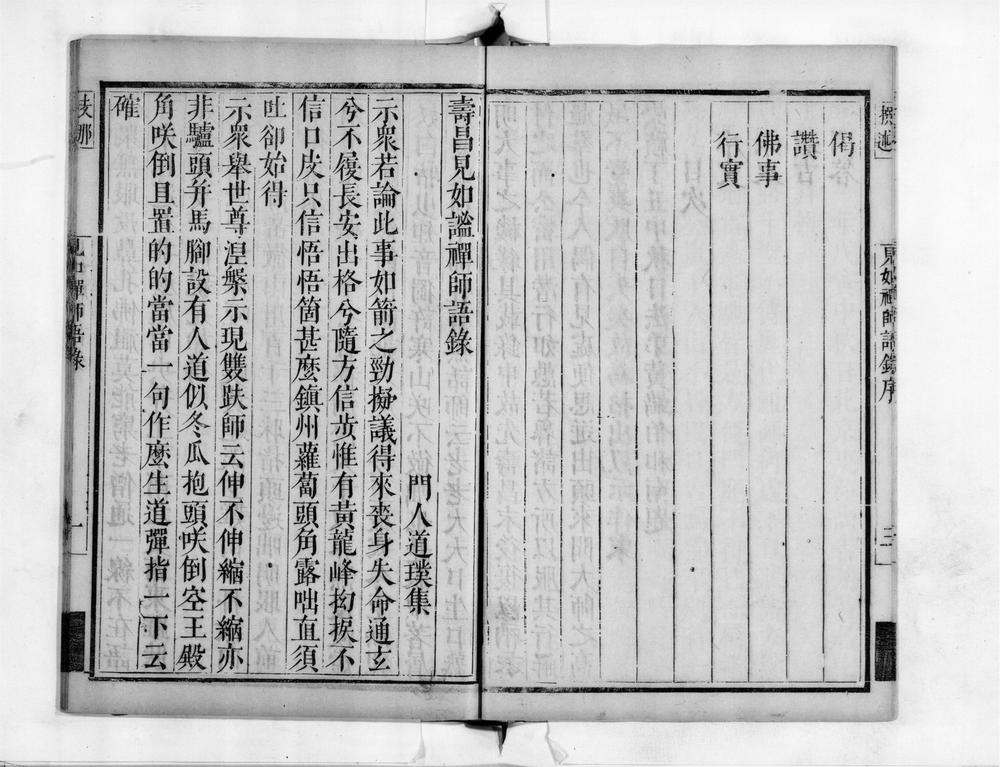 偈
讚
佛事
行實
見如禪師語錄序
三
壽昌見如謐禪師語錄
門人道璞集
示眾若論此事如箭之勁擬議得來喪身失命通玄
兮不履長安出格兮隨方信步惟有黃龍峰拗捩不
信口皮只信悟悟箇甚麼鎮州蘿蔔頭角露咄直須
吐卻始得
示眾舉世尊涅槃示現雙趺師云伸不伸縮不縮亦
非驢頭并馬腳設有人道似冬瓜抱頭咲倒空王殿
角咲倒且置的的當當一句作麼生道彈指一下云
確
支那
見如禪師語錄
一